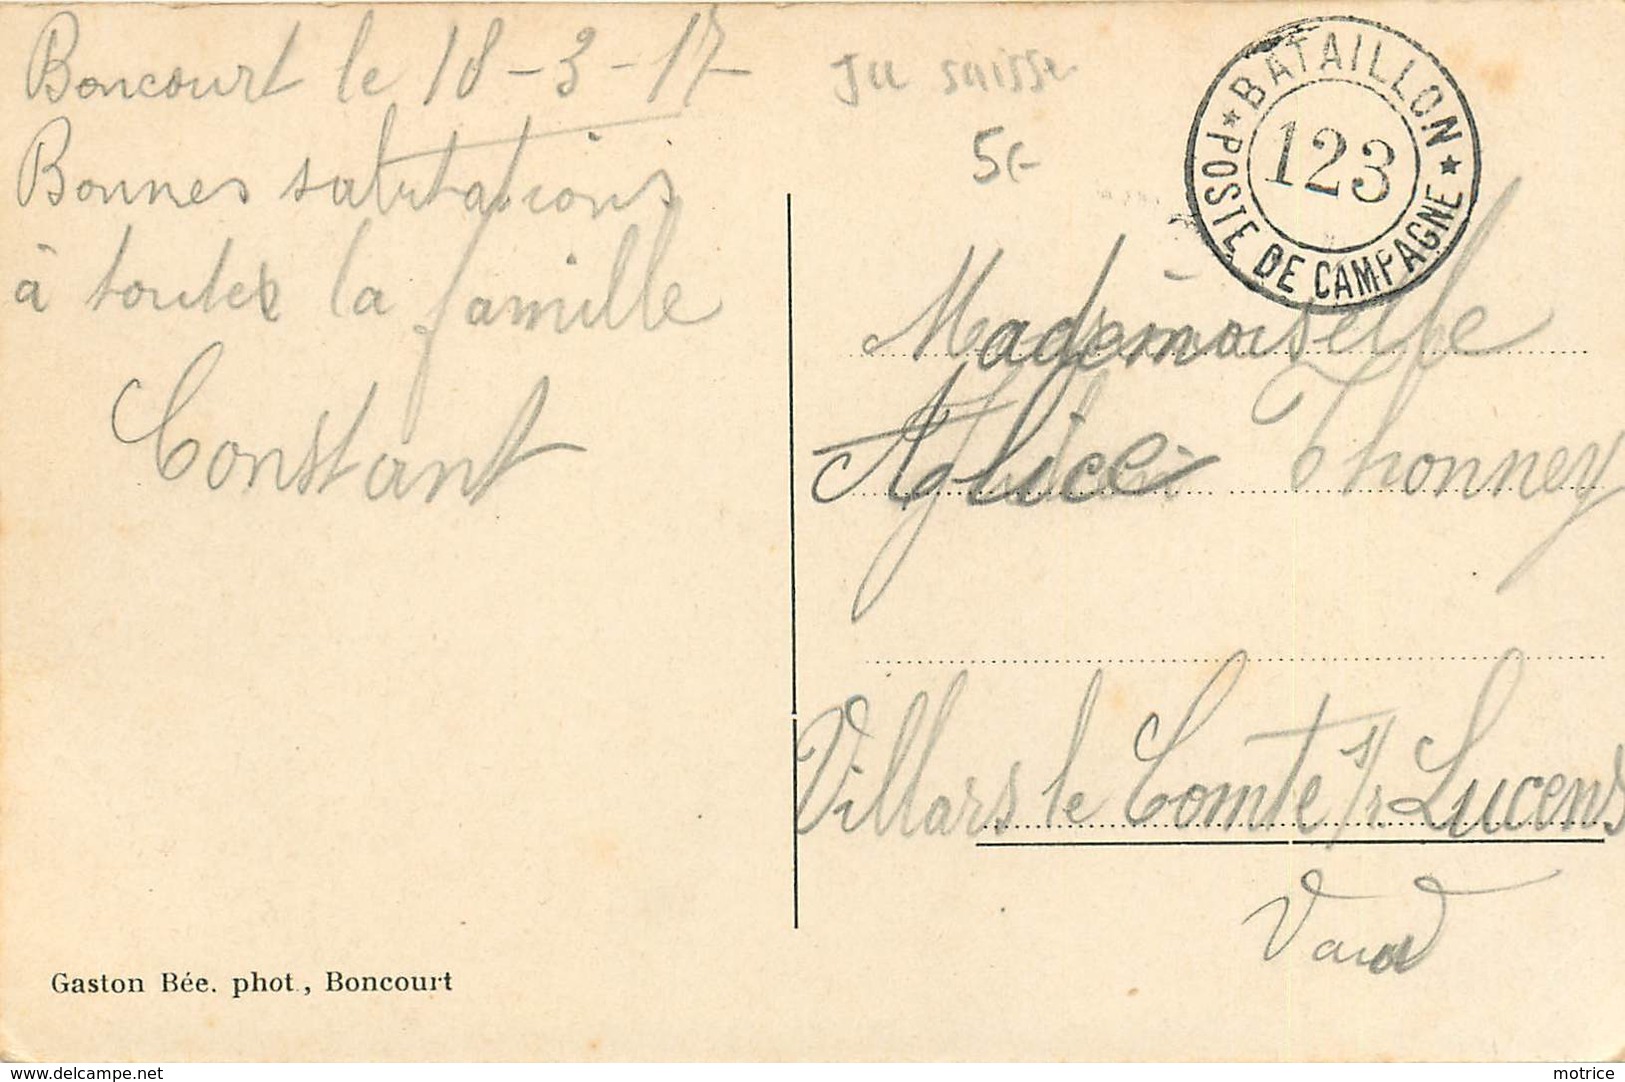 Boncourt le 18-3-17
Bonnes salutations
à toutes la famille
Constant
Ju suisse
5.-
BATAILLON
123
POSTE DE CAMPAGNE
Mademoiselle
Alice Thonney
Villars le Comte s/r Lucens
Vaud
Gaston Bée. phot., Boncourt
www.delcampe.net
motrice